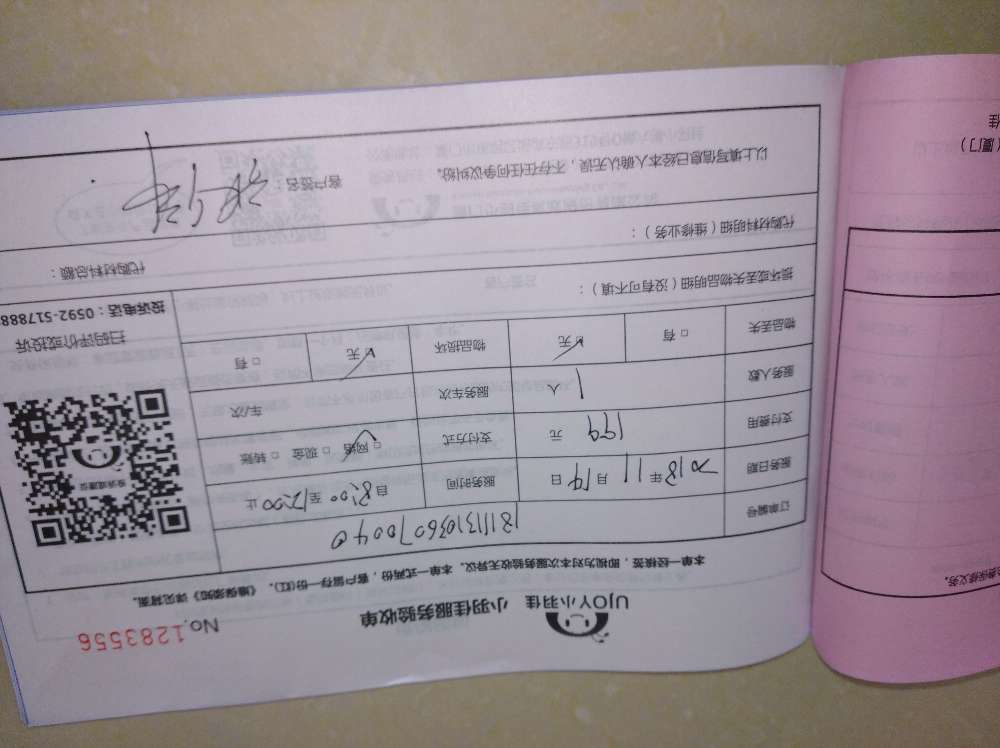 UJOY小羽佳 小羽佳服务验收单
No.1283556
本单一经核签，即视为对本次服务验收无异议。本单一式两份，客户留存一份(红)。《维保须知》详见背面。
订单编号
服务日期 2018年11月19日 服务时间 自8:00至12:00止
支付费用 199 元 支付方式 □网络 □现金 □转账
服务人数 1 人 服务车次 车/次
物品丢失 □有 ☑无 物品损坏 ☑无 □有
损坏或丢失物品明细（没有可不填）：
代购材料明细（维修业务）：
代购材料总额：
以上填写信息已经本人确认无误，不存在任何争议纠纷。
客户签名：
投诉或建议
扫码评价或投诉
投诉电话：0592-517888